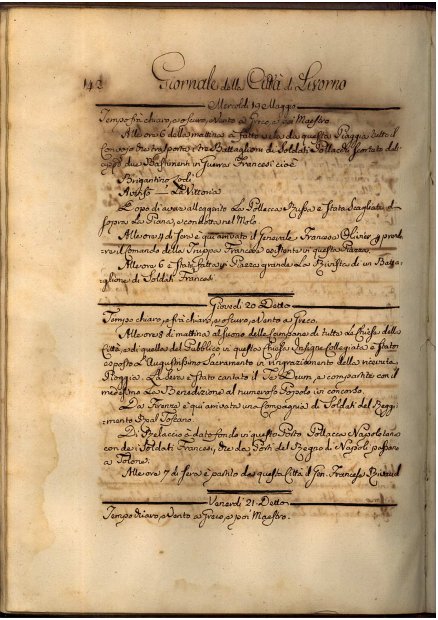 142 Giornale della Città di Livorno
Mercoldì 19 Maggio
Tempo frà chiaro, e oscuro, e Vento a Greco, e poi Maestro.
Alle ore 6 della mattina è fatto vela da questa Piaggia tutto il
Convojo che trasporta tre Battaglioni di Soldati Pollacchi scortato da
due Bastimenti in Guerra Francesi cioè
Brigantino Lodi
Avviso — La Vittoria
Dopo di avere alleggerito La Pollacca Russa è stata scagliata di
sopra La Piana, e condotta nel Molo.
Alle ore 4 di sera è quì arrivato il Generale Francese Olivier p. prende
re il Comando della Truppa Francese esistente in questa Piazza.
Alle ore 6 è stata fatta in Piazza grande La Rivista di un Batta
glione di Soldati Francesi.
Giovedì 20 Detto
Tempo chiaro, e frà chiaro, e oscuro, e Vento a Greco.
Alle ore 8 di mattina al suono delle Campane di tutte Le Chiese della
Città, e di quella del Pubblico in questa Chiesa Insigne Collegiata è stato
esposto L'Augustissimo Sacramento in ringraziamento della ricevuta
Pioggia. La sera è stato cantato il Te Deum, e compartita con il
medesimo La Benedizione al numeroso Popolo in concorso.
Da Firenze è quì arrivata una Compagnia di Soldati del Reggi
mento Real Toscano.
Di Rilascio à dato fondo in questo Porto Pollacca Napoletana
con dei Soldati Francesi, che da Porti del Regno di Napoli passava
a Tolone.
Alle ore 7 di sera è partito da questa Città il Gen. Francese Rivaud
Venerdì 21 Detto
Tempo chiaro, e Vento a Greco, e poi Maestro.